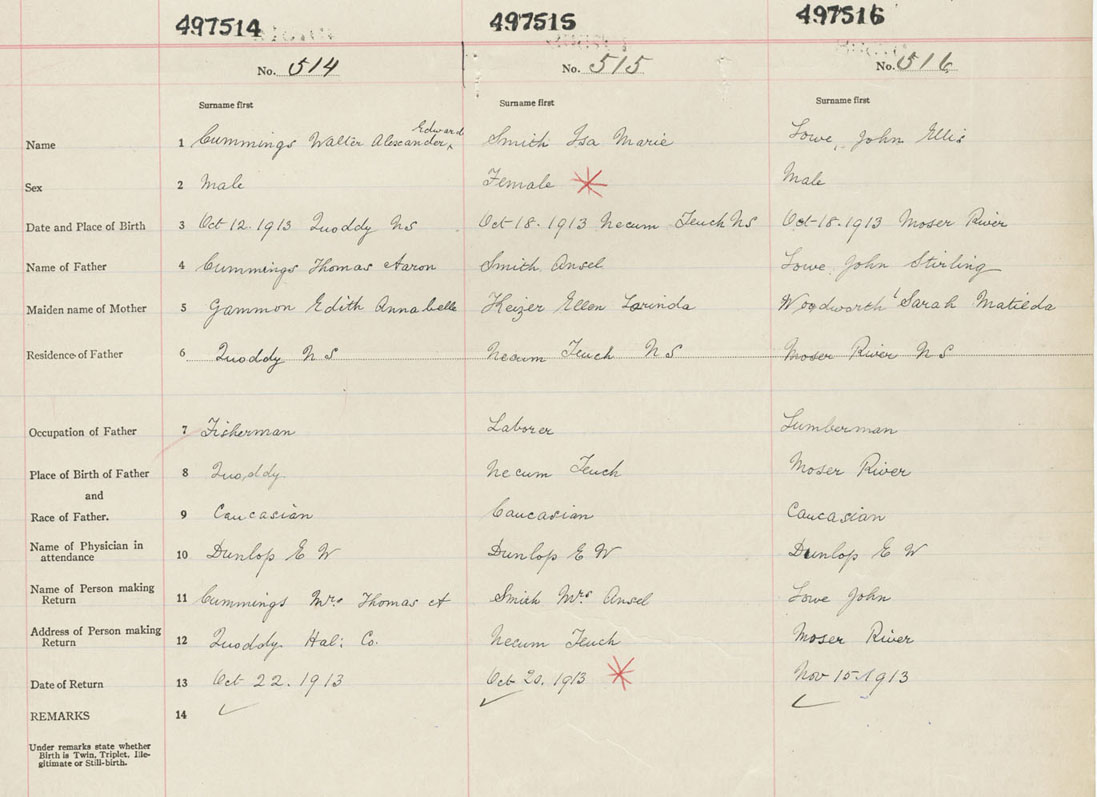 497514 497515 497516
No. 514 No. 515 No. 516
Surname first Surname first Surname first
Edward
Name 1 Cummings Walter Alexander Smith Isa Marie Lowe, John Ellis
Sex 2 Male Female Male
Date and Place of Birth 3 Oct 12. 1913 Quoddy NS Oct-18-1913 Necum Teuch NS Oct-18-1913 Moser River
Name of Father 4 Cummings Thomas Aaron Smith Ansel Lowe John Stirling
Maiden name of Mother 5 Gammon Edith Annabelle Keizer Ellen Lorinda Woodworth Sarah Matilda
Residence of Father 6 Quoddy N S Necum Teuch N S Moser River N S
Occupation of Father 7 Fisherman Laborer Lumberman
Place of Birth of Father 8 Quoddy Necum Teuch Moser River
and
Race of Father. 9 Caucasian Caucasian Caucasian
Name of Physician in
attendance 10 Dunlop E W Dunlop E W Dunlop E W
Name of Person making
Return 11 Cummings Mrs Thomas A Smith Mrs Ansel Lowe John
Address of Person making
Return 12 Quoddy Hal: Co. Necum Teuch Moser River
Date of Return 13 Oct 22. 1913 Oct 20. 1913 Nov 15-1913
REMARKS 14
Under remarks state whether
Birth is Twin, Triplet, Ille-
gitimate or Still-birth.